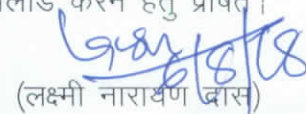 लोड करने हेतु प्रेषित।
6/8/18
(लक्ष्मी नारायण दास)